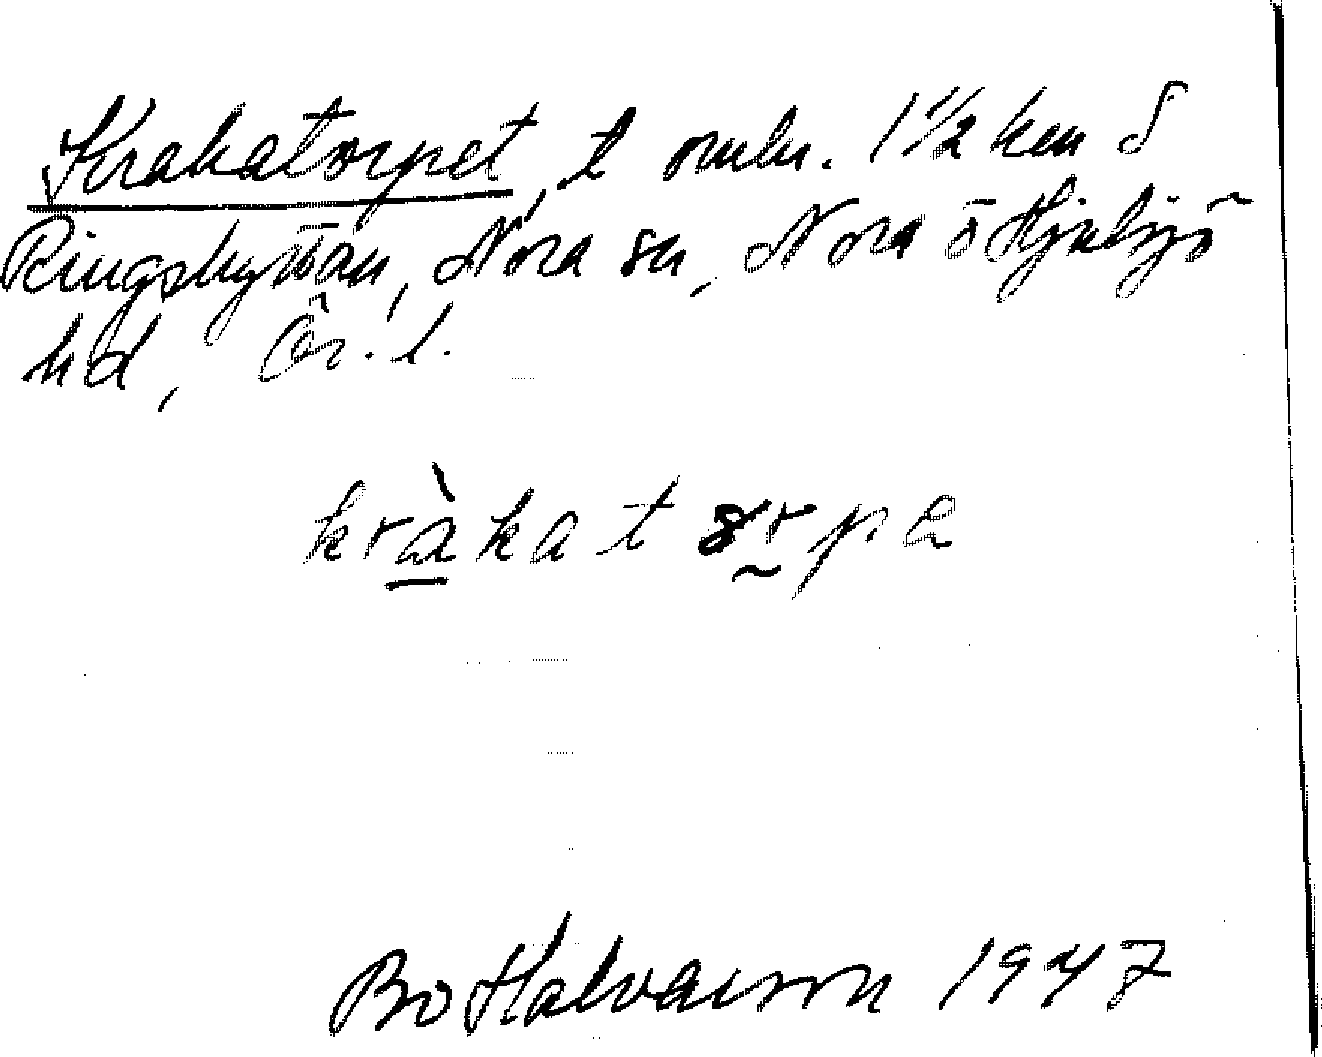 Krakatorpet, t omkr. 1 1/2 km S
Ringshyttan, Nora sn, Nora o Hjulsjö
hd, Ör. l.
kràkatɷrpe
Bo Halvarson 1947